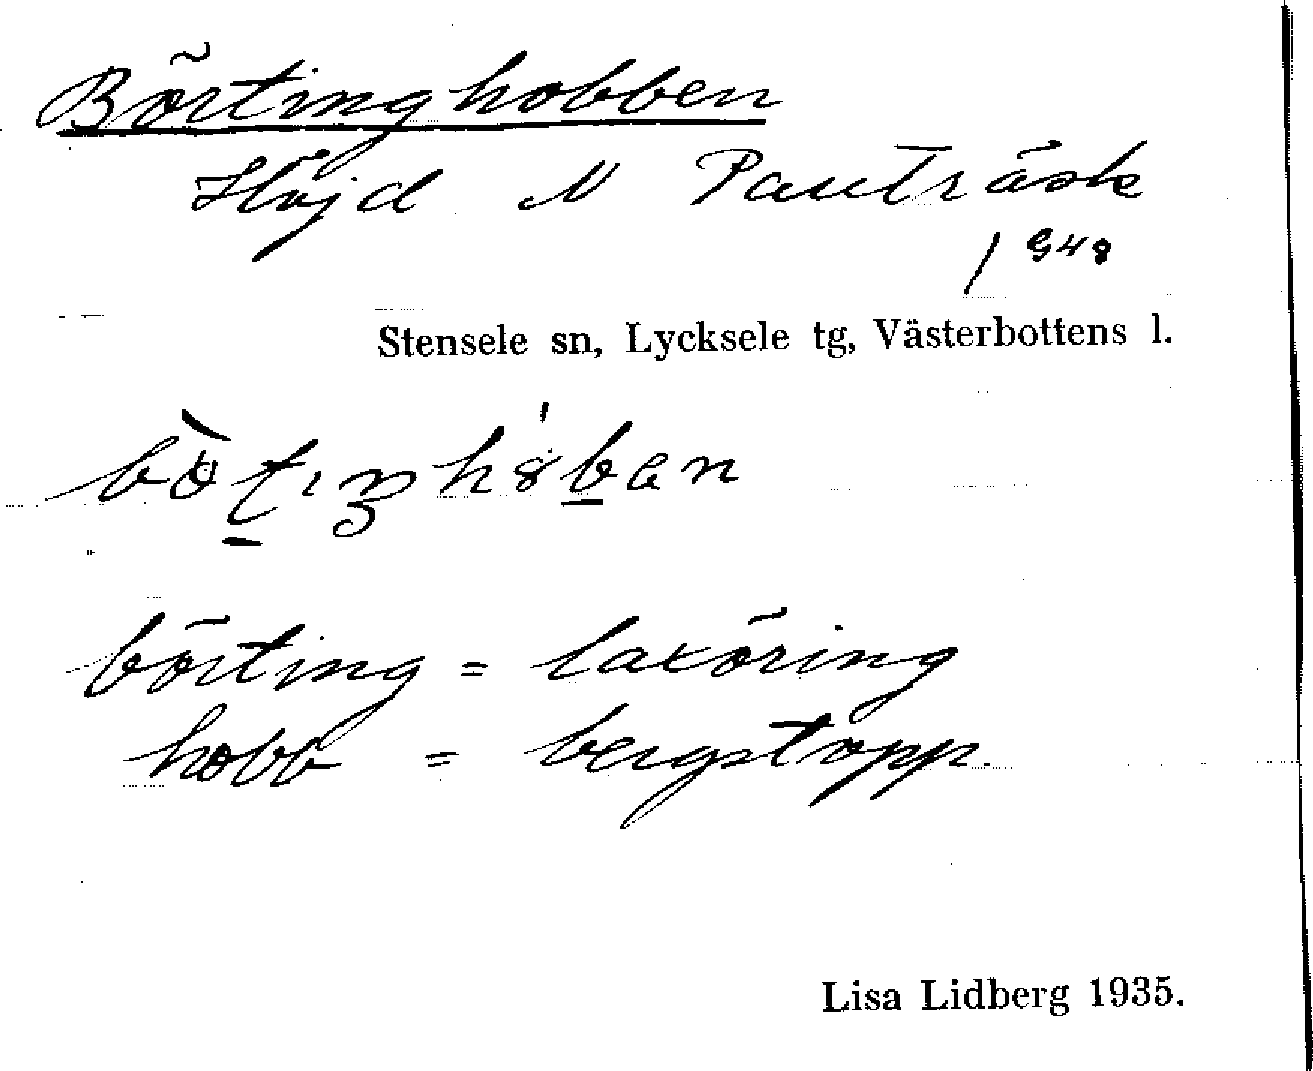 Börtinghobben
Höjd N Pauträsk
1948
Stensele sn, Lycksele tg, Västerbottens l.
börting = laxöring
hobb = bergstopp.
Lisa Lidberg 1935.